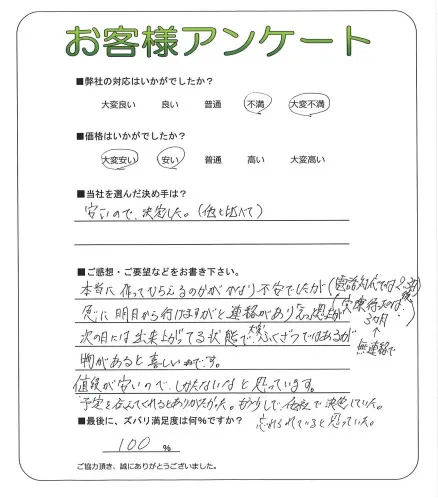 お客様アンケート
■弊社の対応はいかがでしたか?
大変良い 良い 普通 不満 大変不満
■価格はいかがでしたか?
大変安い 安い 普通 高い 大変高い
■当社を選んだ決め手は?
安いので、決定した。(他と比べて)
■ご感想・ご要望などをお書き下さい。
本当に作ってもらえるのかがかなり不安でしたが(電話対応では2-3
急に明日から行けますがと連絡があり
3ヵ月
次の日には出来上がってる状態で、ふくざつではあるが
↑
無連絡で
物があると喜しいものです。
値段が安いので、しかたないなと思っています。
予定を含んでくれるとありがたかった。もう少しで、他社で決定していた。
忘れられていると思っていた。
■最後に、ズバリ満足度は何%ですか?
100 %
ご協力頂き、誠にありがとうございました。